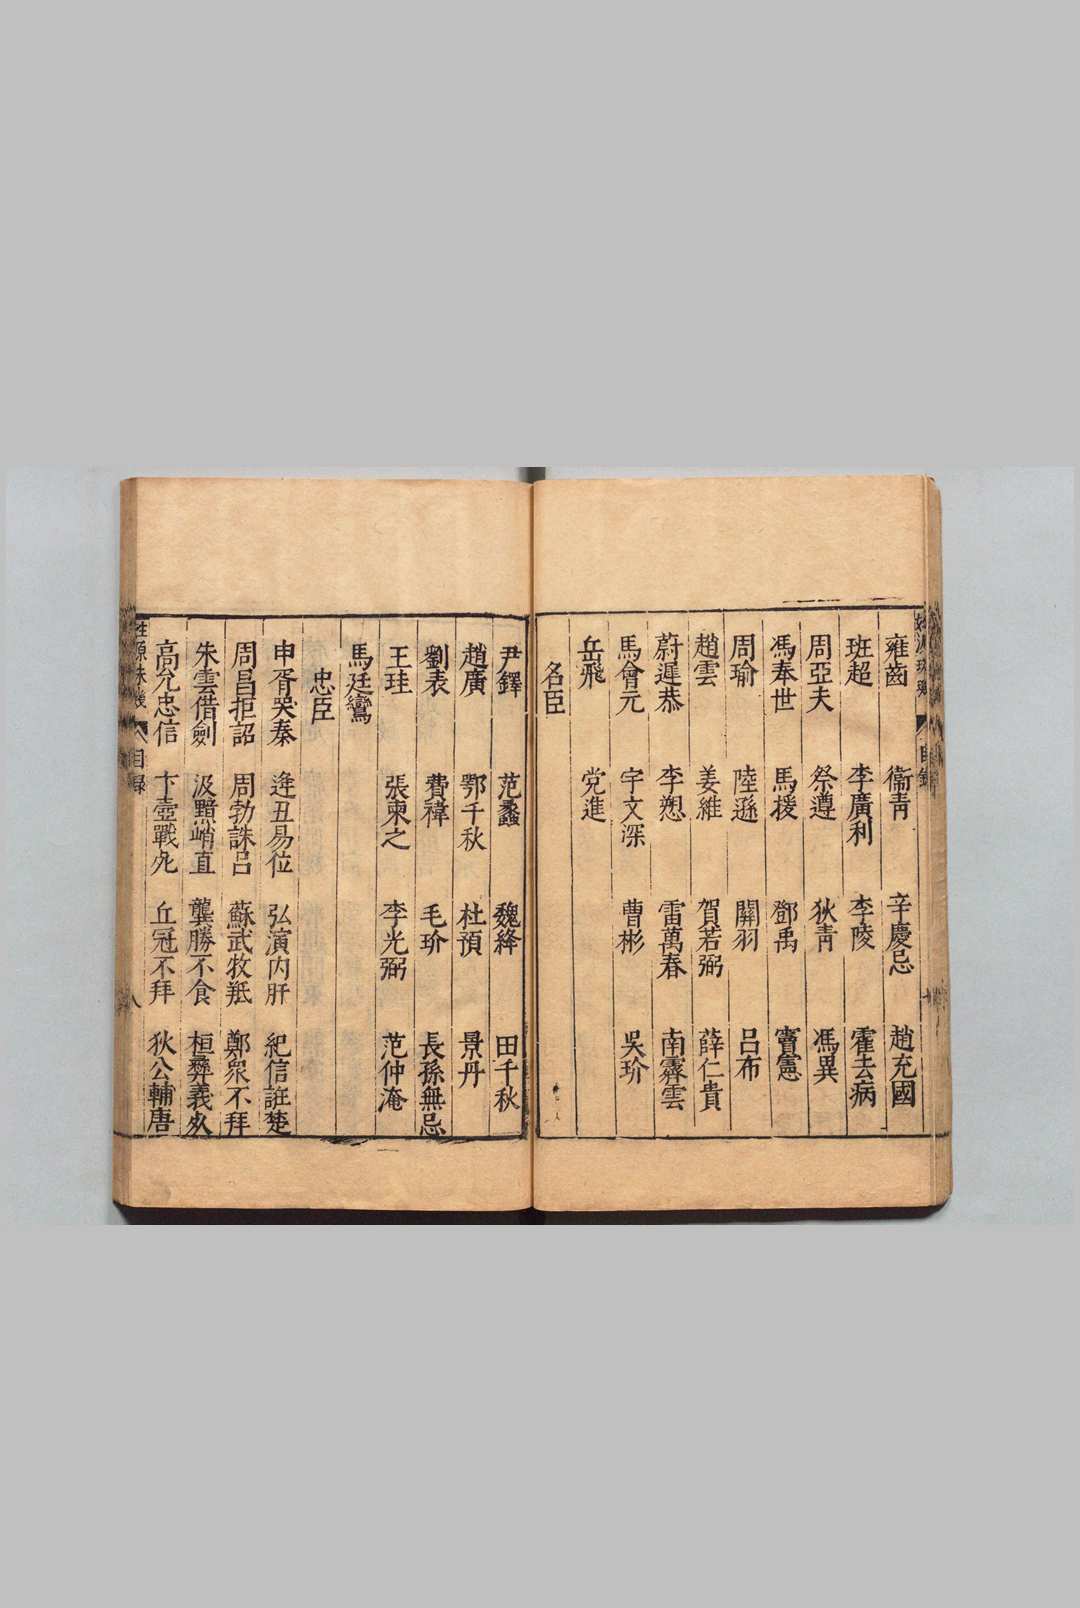 雍齒 衞青 辛慶忌 趙充國
班超 李廣利 李陵 霍去病
周亞夫 祭遵 狄青 馮異
馮奉世 馬援 鄧禹 竇憲
周瑜 陸遜 關羽 呂布
趙雲 姜維 賀若弼 薛仁貴
蔚遲恭 李愬 雷萬春 南霽雲
馬會元 宇文深 曹彬 吳玠
岳飛 党進
名臣
尹鐸 范蠡 魏絳 田千秋
趙廣 鄂千秋 杜預 景丹
劉表 費禕 毛玠 長孫無忌
王珪 張柬之 李光弼 范仲淹
馬廷鸞
忠臣
申胥哭秦 逄丑易位 弘演內肝 紀信誑楚
周昌拒詔 周勃誅呂 蘇武牧羝 鄭衆不拜
朱雲借劍 汲黯峭直 龔勝不食 桓彝義㐲
高允忠信 卞壺戰死 丘冠不拜 狄公輔唐
姓源珠璣 目録 八